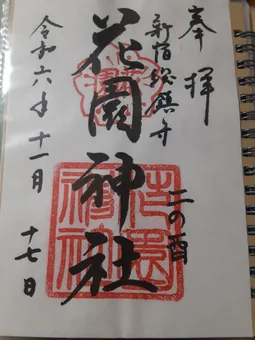 奉拝
新宿総鎮守
二の酉
花園神社
令和六年十一月
十七日
花園神社